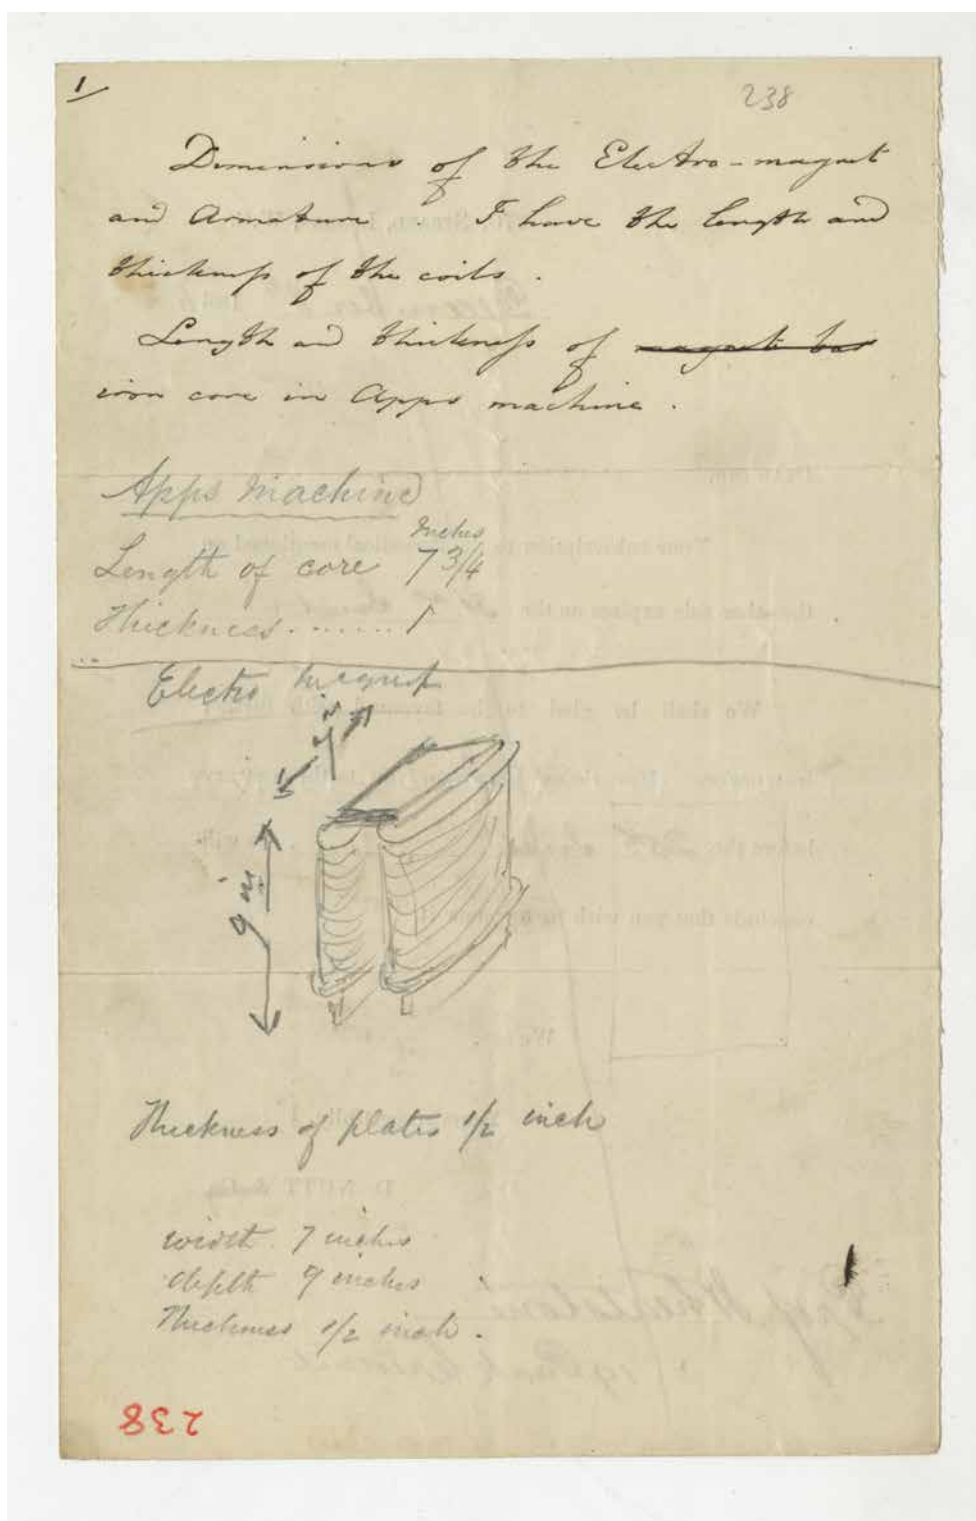 1
238
Dimensions of the Electro-magnet
and Armature. I have the length and
thickness of the coils.
Length and thickness of magnet bar
iron core in Apps machine.
Apps Machine
Inches
Length of core 7 3/4
Thickness........1
Electro Magnet
7 in
9 in
Thickness of plates 1/2 inch
width 7 inches
depth 9 inches
Thickness 1/2 inch.
238